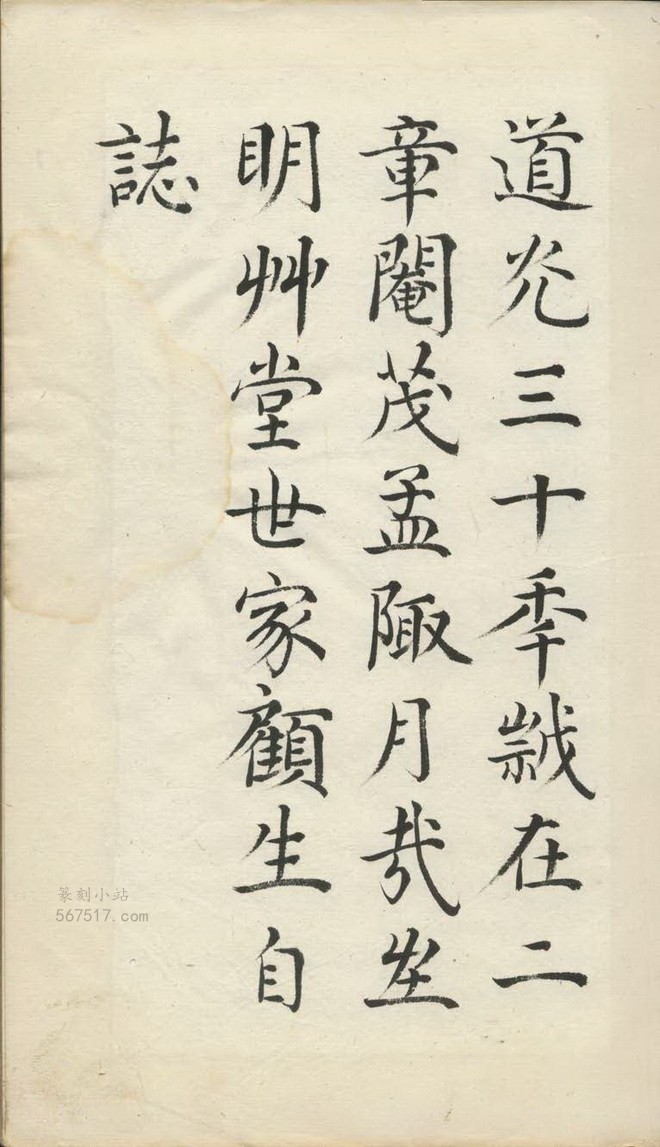 道灮三十秊歲在二
章閹茂孟陬月哉生
眀艸堂世家顧生自
誌
篆刻小站
567517.com